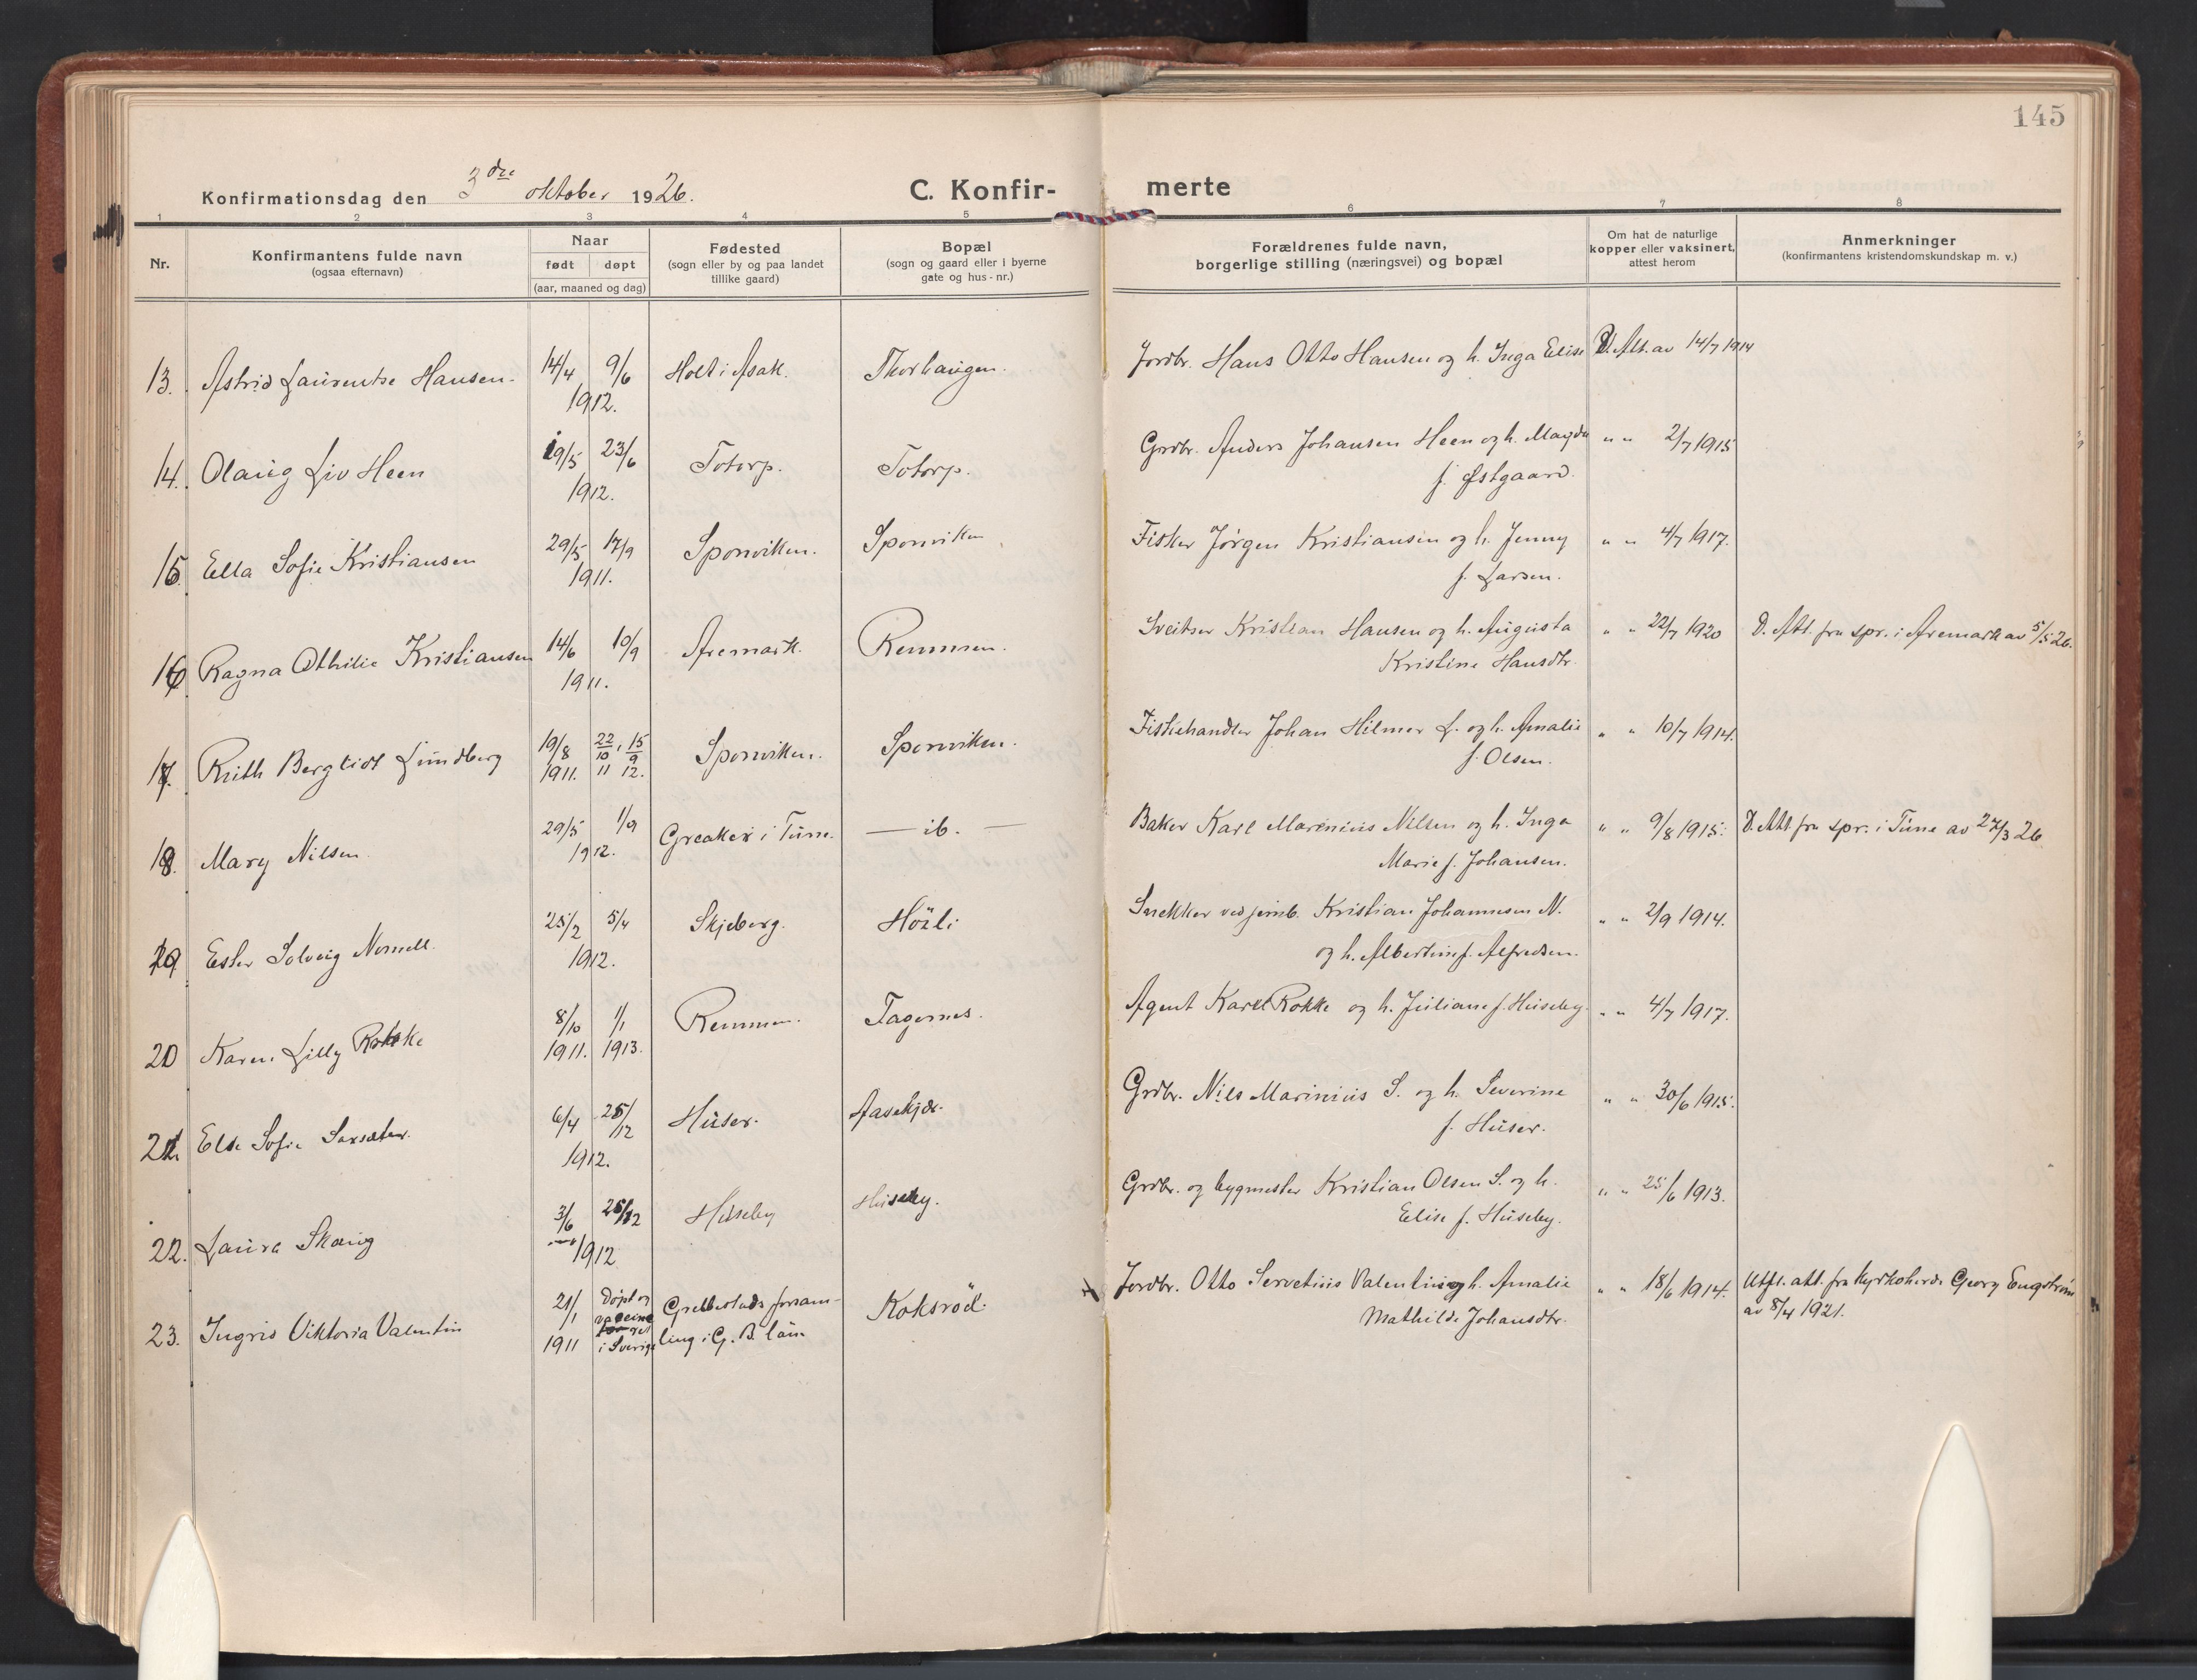 145
Konfirmationsdag den 3dre oktober 1926. C. Konfir- merte
1 2 3 4 5 6 7 8
Nr. Konfirmantens fulde navn (ogsaa efternavn) Naar født døpt (aar, maaned og dag) Fødested (sogn eller by og paa landet tillike gaard) Bopæl (sogn og gaard eller i byerne gate og hus-nr.) Forældrenes fulde navn, borgerlige stilling (næringsvei) og bopæl Om hat de naturlige kopper eller vaksinert, attest herom Anmerkninger (konfirmantens kristendomskundskap m. v.)
13. Astrid Laurentse Hansen. 14/4 9/6 Holt i Asak. Thorhaugen. Jordbr. Hans Otto Hansen og h. Inga Elise D. Att. av 14/7 1914
1912.
14. Olaug Liv Heen 19/5 23/6 Totorp. Totorp. Grdbr. Anders Johansen Heen og h. Magda " " 2/7 1915
1912. f. Østgaard.
15. Ella Sofie Kristiansen 29/5 17/9 Sponviken. Sponviken Fisker Jørgen Kristiansen og h. Jenny " " 4/7 1917.
1911. f. Larsen.
16 Ragna Othilie Kristiansen 14/6 10/9 Aremark. Remmen. Sveitser Kristian Hansen og h. Augusta " " 22/7 1920 D. Att. fra spr. i Aremark av 5/5 26.
1911. Kristine Hansdtr.
17. Ruth Bergliot Lundberg 19/8 22/10, 15/9 Sponviken. Sponviken. Fiskehandler Johan Hilmer L. og h. Amalie " " 10/7 1914.
1911. 11 12. f. Olsen.
18. Mary Nilsen. 29/5 1/9 Greaker i Tune. — ib. — Baker Karl Marinius Nilsen og h. Inga " " 9/8 1915. D. Att. fra spr. i Tune av 27/3 26
1912. Marie f. Johansen.
19 Ester Solveig Nornell. 25/2 5/4 Skjeberg. Snekker ved jernb. Kristian Johannesen N. " " 2/9 1914.
1912. og h. Albertine f. Alfredsen.
20 Karen Lilly Rokke 8/10 1/1 Remmen. Fagernes. Agent Karl Rokke og h. Juliane f. Huseby. " " 4/7 1917.
1911. 1913.
21. Else Sofie 6/4 25/12 Huser. Aasekjær. Grdbr. Nils Marinius S. og h. Severine " " 30/6 1915.
1912. f. Huser.
22. Laura Skaug 3/6 26/12 Huseby Huseby. Grdbr. og bygmester Kristian Olsen S. og h. " " 25/6 1913.
1912 Elise f. Huseby.
23. Ingrid Viktoria Valentin 21/1 Døpt og Grebbestads forsam- Koksröd. Jordbr. Otto Servetius Valentin og h. Amalie " " 18/6 1914. Utfl. att. fra kyrkoherde Georg Engström
1911 i Sverige ling i G. B. län Mathilde Johansdtr. av 8/4 1921.